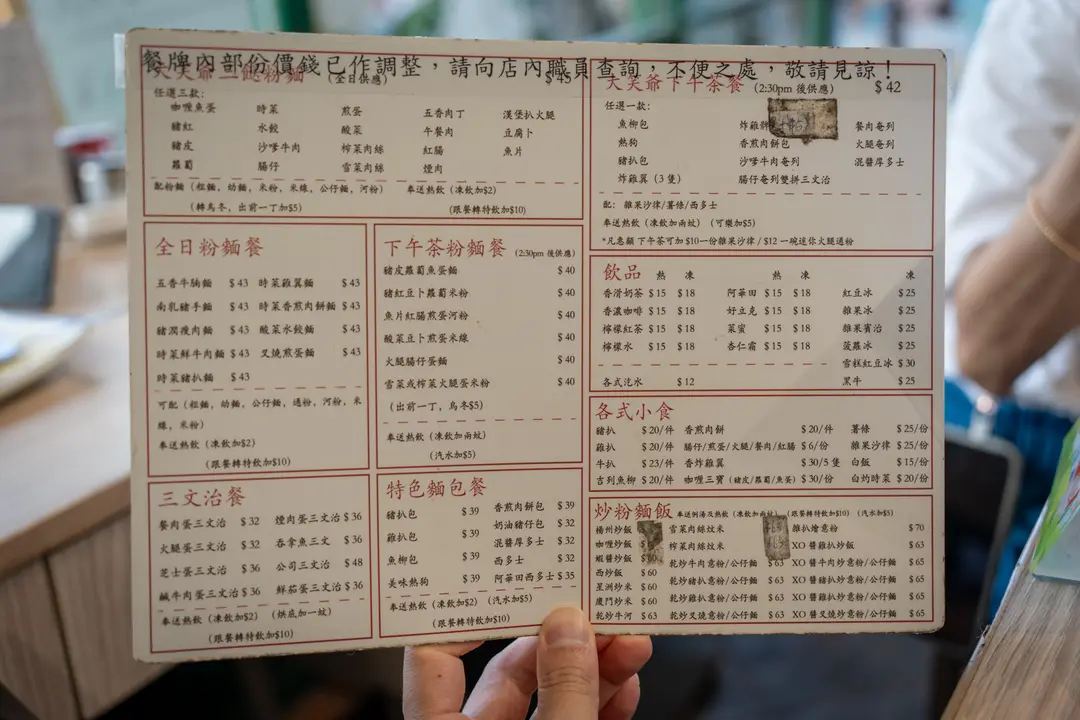 餐牌內部份價錢已作調整，請向店內職員查詢，不便之處，敬請見諒！
(全日供應) $45
任選三款：
咖喱魚蛋 時菜 煎蛋 五香肉丁 漢堡扒火腿
豬紅 水餃 酸菜 午餐肉 豆腐卜
豬皮 沙嗲牛肉 榨菜肉絲 紅腸 魚片
蘿蔔 腸仔 雪菜肉絲 煙肉
配粉麵（粗麵，幼麵，米粉，米線，公仔麵，河粉） 奉送熱飲（凍飲加$2）
（轉烏冬，出前一丁加$5） （跟餐轉特飲加$10）
天笑爺下午茶餐 (2:30pm 後供應) $42
任選一款：
魚柳包 炸雞髀 餐肉奄列
熱狗 香煎肉餅包 火腿奄列
豬扒包 沙嗲牛肉奄列 混醬厚多士
炸雞翼（3隻） 腸仔奄列雙拼三文治
配：雜果沙律/薯條/西多士
奉送熱飲（凍飲加兩蚊）（可樂加$5）
*凡惠顧 下午茶可加$10一份雜果沙律 / $12 一碗迷你火腿通粉
全日粉麵餐
五香牛腩麵 $43 時菜雞翼麵 $43
南乳豬手麵 $43 時菜香煎肉餅麵 $43
豬潤瘦肉麵 $43 酸菜水餃麵 $43
時菜鮮牛肉麵 $43 叉燒煎蛋麵 $43
時菜豬扒麵 $43
可配（粗麵，幼麵，公仔麵，通粉，河粉，米
線，米粉）
奉送熱飲（凍飲加$2）
（跟餐轉特飲加$10）
下午茶粉麵餐 (2:30pm 後供應)
豬皮蘿蔔魚蛋麵 $40
豬紅豆卜蘿蔔米粉 $40
魚片紅腸煎蛋河粉 $40
酸菜豆卜煎蛋米線 $40
火腿腸仔蛋麵 $40
雪菜或榨菜火腿蛋米粉 $40
（出前一丁，烏冬$5）
奉送熱飲（凍飲加兩蚊）
（汽水加$5）
飲品 熱 凍 熱 凍 凍
香滑奶茶 $15 $18 阿華田 $15 $18 紅豆冰 $25
香濃咖啡 $15 $18 好立克 $15 $18 雜果冰 $25
檸檬紅茶 $15 $18 菜蜜 $15 $18 雜果賓治 $25
檸檬水 $15 $18 杏仁霜 $15 $18 菠蘿冰 $25
雪糕紅豆冰 $30
各式汽水 $12 黑牛 $25
各式小食
豬扒 $20/件 香煎肉餅 $20/件 薯條 $25/份
雞扒 $20/件 腸仔/煎蛋/火腿/餐肉/紅腸 $6/份 雜果沙律 $25/份
牛扒 $23/件 香炸雞翼 $30/5隻 白飯 $15/份
吉列魚柳 $20/件 咖喱三寶（豬皮/蘿蔔/魚蛋）$30/份 白灼時菜 $20/份
三文治餐
餐肉蛋三文治 $32 煙肉蛋三文治 $36
火腿蛋三文治 $32 吞拿魚三文 $36
芝士蛋三文治 $36 公司三文治 $48
鹹牛肉蛋三文治 $36 鮮茄蛋三文治 $36
奉送熱飲（凍飲加$2）（烘底加一蚊）
（跟餐轉特飲加$10）
特色麵包餐
豬扒包 $39 香煎肉餅包 $39
雞扒包 $39 奶油豬仔包 $32
魚柳包 $39 混醬厚多士 $32
西多士 $32
美味熱狗 $39 阿華田西多士 $35
奉送熱飲（凍飲加$2）（汽水加$5）
（跟餐轉特飲加$10）
炒粉麵飯 奉送例湯及熱飲（凍飲加兩蚊）（跟餐轉特飲加$10）（汽水加$5）
楊州炒飯 雪菜肉絲炆米 雞扒燴意粉 $70
咖喱炒飯 榨菜肉絲炆米 XO 醬雞扒炒飯 $63
蝦醬炒飯 乾炒牛肉意粉/公仔麵 $63 XO 醬牛肉炒意粉/公仔麵 $65
西炒飯 $60 乾炒豬扒意粉/公仔麵 $63 XO 醬豬扒炒意粉/公仔麵 $65
星洲炒米 $60 乾炒雞扒意粉/公仔麵 $63 XO 醬雞扒炒意粉/公仔麵 $65
廈門炒米 $60 乾炒叉燒意粉/公仔麵 $63 XO 醬叉燒炒意粉/公仔麵 $65
乾炒牛河 $60